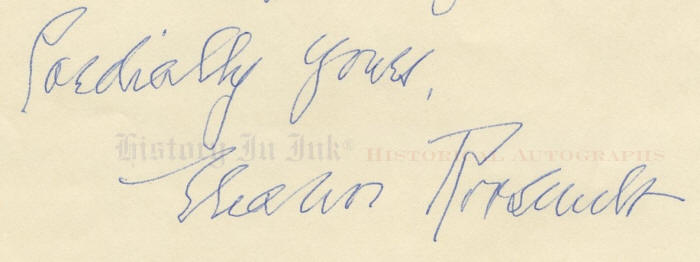 Cordially yours,
History In Ink® Historical Autographs
Eleanor Roosevelt